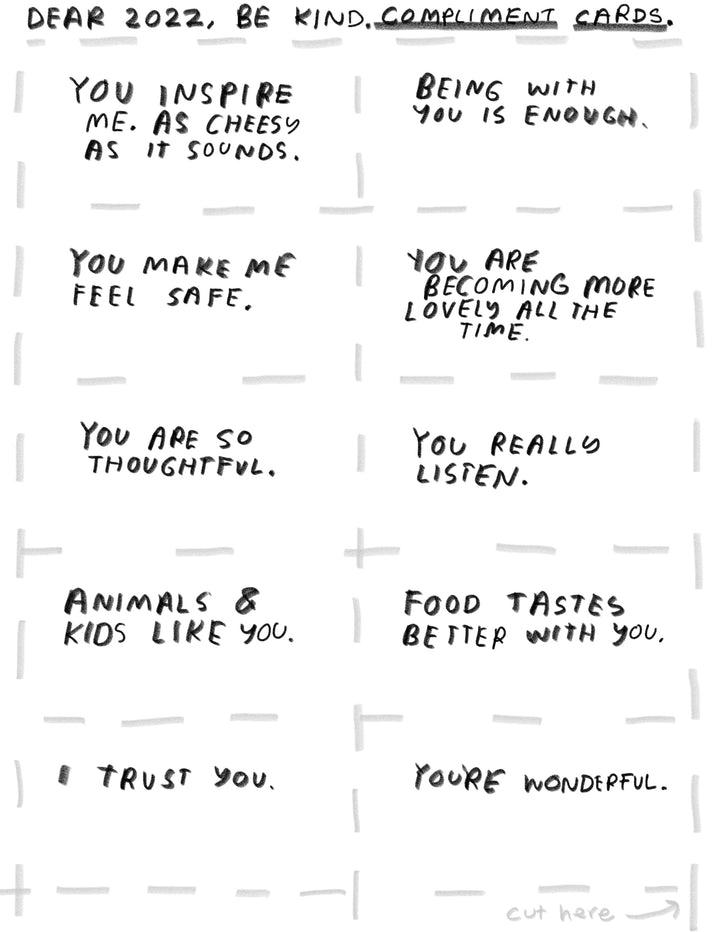 DEAR 2022, BE KIND. COMPLIMENT CARDS.
YOU INSPIRE
ME. AS CHEESY
AS IT SOUNDS.
BEING WITH
YOU IS ENOUGH.
YOU MAKE ME
FEEL SAFE.
YOU ARE
BECOMING MORE
LOVELY ALL THE
TIME.
YOU ARE SO
THOUGHTFUL.
YOU REALLY
LISTEN.
ANIMALS &
KIDS LIKE YOU.
FOOD TASTES
BETTER WITH YOU.
I TRUST YOU.
YOU'RE WONDERFUL.
cut here